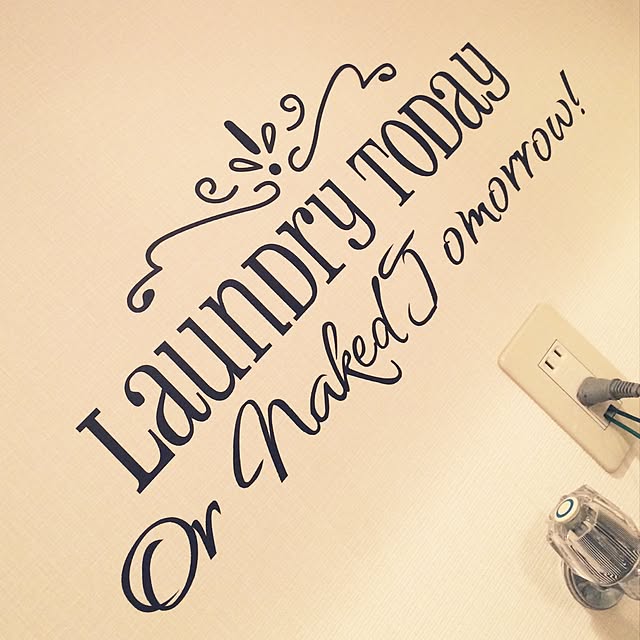 Laundry Today
Or Naked Tomorrow!